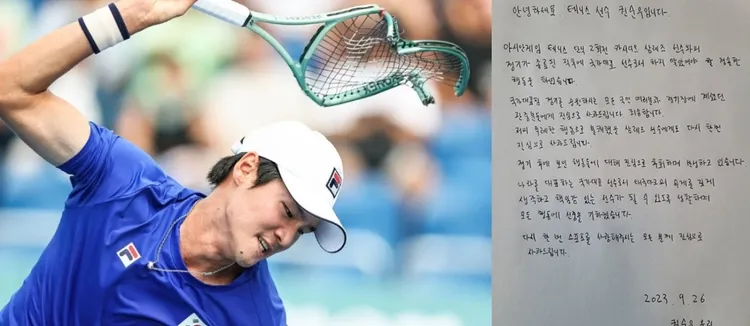 안녕하세요 테니스 선수 권순우입니다.
아시안게임 테니스 단식 2회전 카시디트 삼레즈 선수와의
경기가 종료된 직후에 국가대표 선수로서 하지 말았어야 할 경솔한
행동을 하였습니다.
국가대표팀 경기를 응원하시는 모든 국민 여러분과 경기장에 계셨던
관중분들에게 진심으로 사과드립니다. 죄송합니다.
저의 무례한 행동으로 불쾌했을 삼레즈 선수에게도 다시 한번
진심으로 사과드립니다.
경기 후에 보인 행동들에 대해 진심으로 후회하며 반성하고 있습니다
나라를 대표하는 국가대표 선수로서 태극마크의 무게를 깊게
생각하고 책임감 있는 선수가 될 수 있도록 성찰하며
모든 행동에 신중을 기하겠습니다.
다시 한 번 스포츠를 사랑해주시는 모든 분께 진심으로
사과드립니다.
2023.9.26
권순우 올림
FILA
FILA